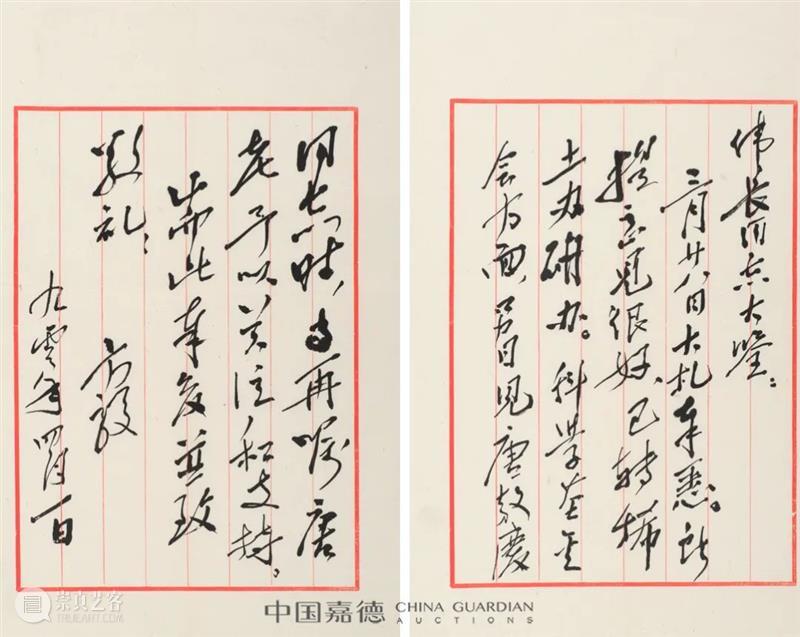 伟长同志大鉴：
三月廿八日大札奉悉。所
提意见很好，已转稀
土办研办。科学基金
会方面，另日见唐敖庆
同志时，当再嘱唐
老予以关注和支持。
耑此奉复并致
敬礼！
方毅
九零年四月一日
崇真艺客
中国嘉德 CHINA GUARDIAN
AUCTIONS